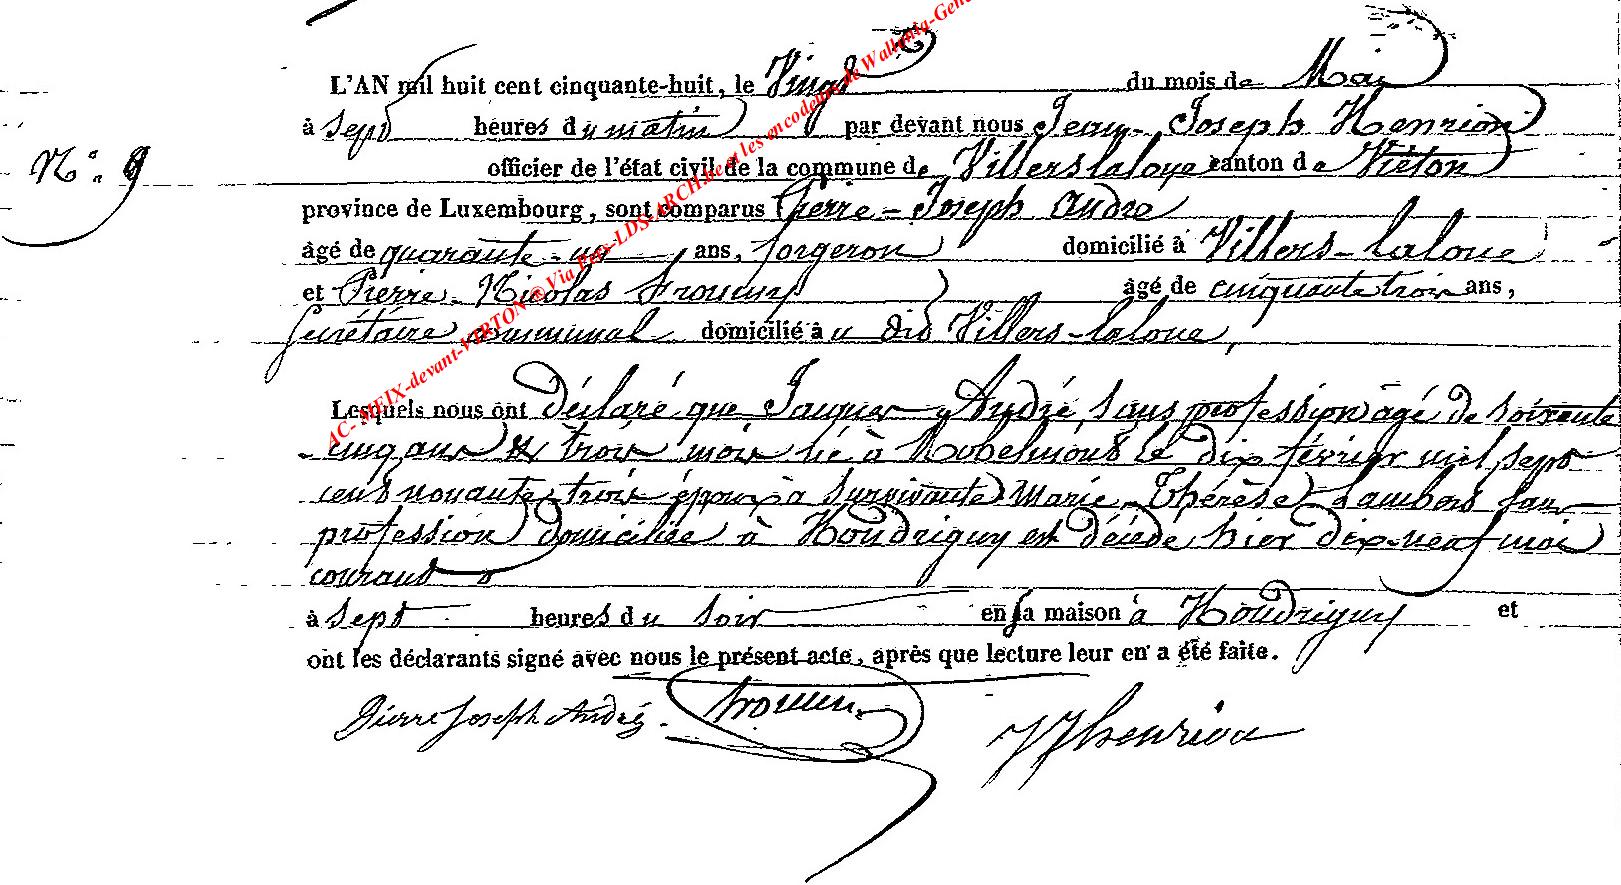 L'AN mil huit cent cinquante-huit, le Vingt du mois de Mai
à sept heures du matin par devant nous Jean-Joseph Henrion
N° 9
officier de l'état civil de la commune de Villerslaloue canton de Virton
province de Luxembourg, sont comparus Pierre-Joseph André
âgé de quarante-un ans, forgeron domicilié à Villers-laloue
et Pierre-Nicolas âgé de cinquante trois ans,
Secrétaire Communal domicilié à u dit Villers-laloue,
Lesquels nous ont déclaré que André, sans profession âgé de soixante
cinq ans & trois mois né à Robelmont le dix février mil sept
cent nonante-trois époux à survivante Marie-Thérèse Lambert sans
profession domiciliée à Houdrigny est décédé hier dix-neuf mai
courant
à sept heures du soir en sa maison à Houdrigny et
ont les déclarants signé avec nous le présent acte, après que lecture leur en a été faite.
Pierre Joseph André. JJhenrion
AC-MEIX-devant-VIRTON ® Via Pers-LDS-ARCH.be et les encodeurs de Wallonia-Gen